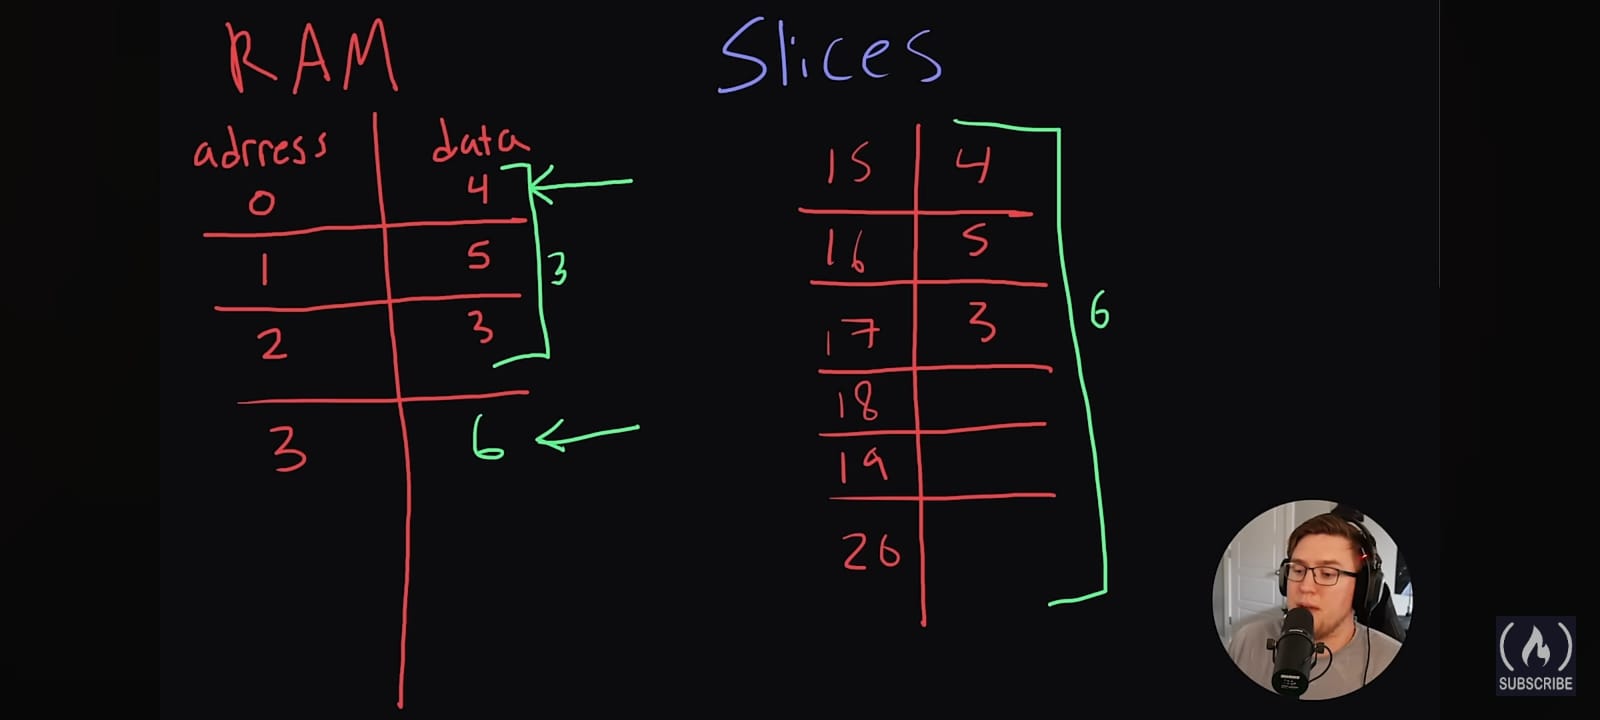 RAM
adrress data
0 4
1 5
2 3
3 6
3
Slices
15 4
16 5
17 3
18
19
20
6
SUBSCRIBE